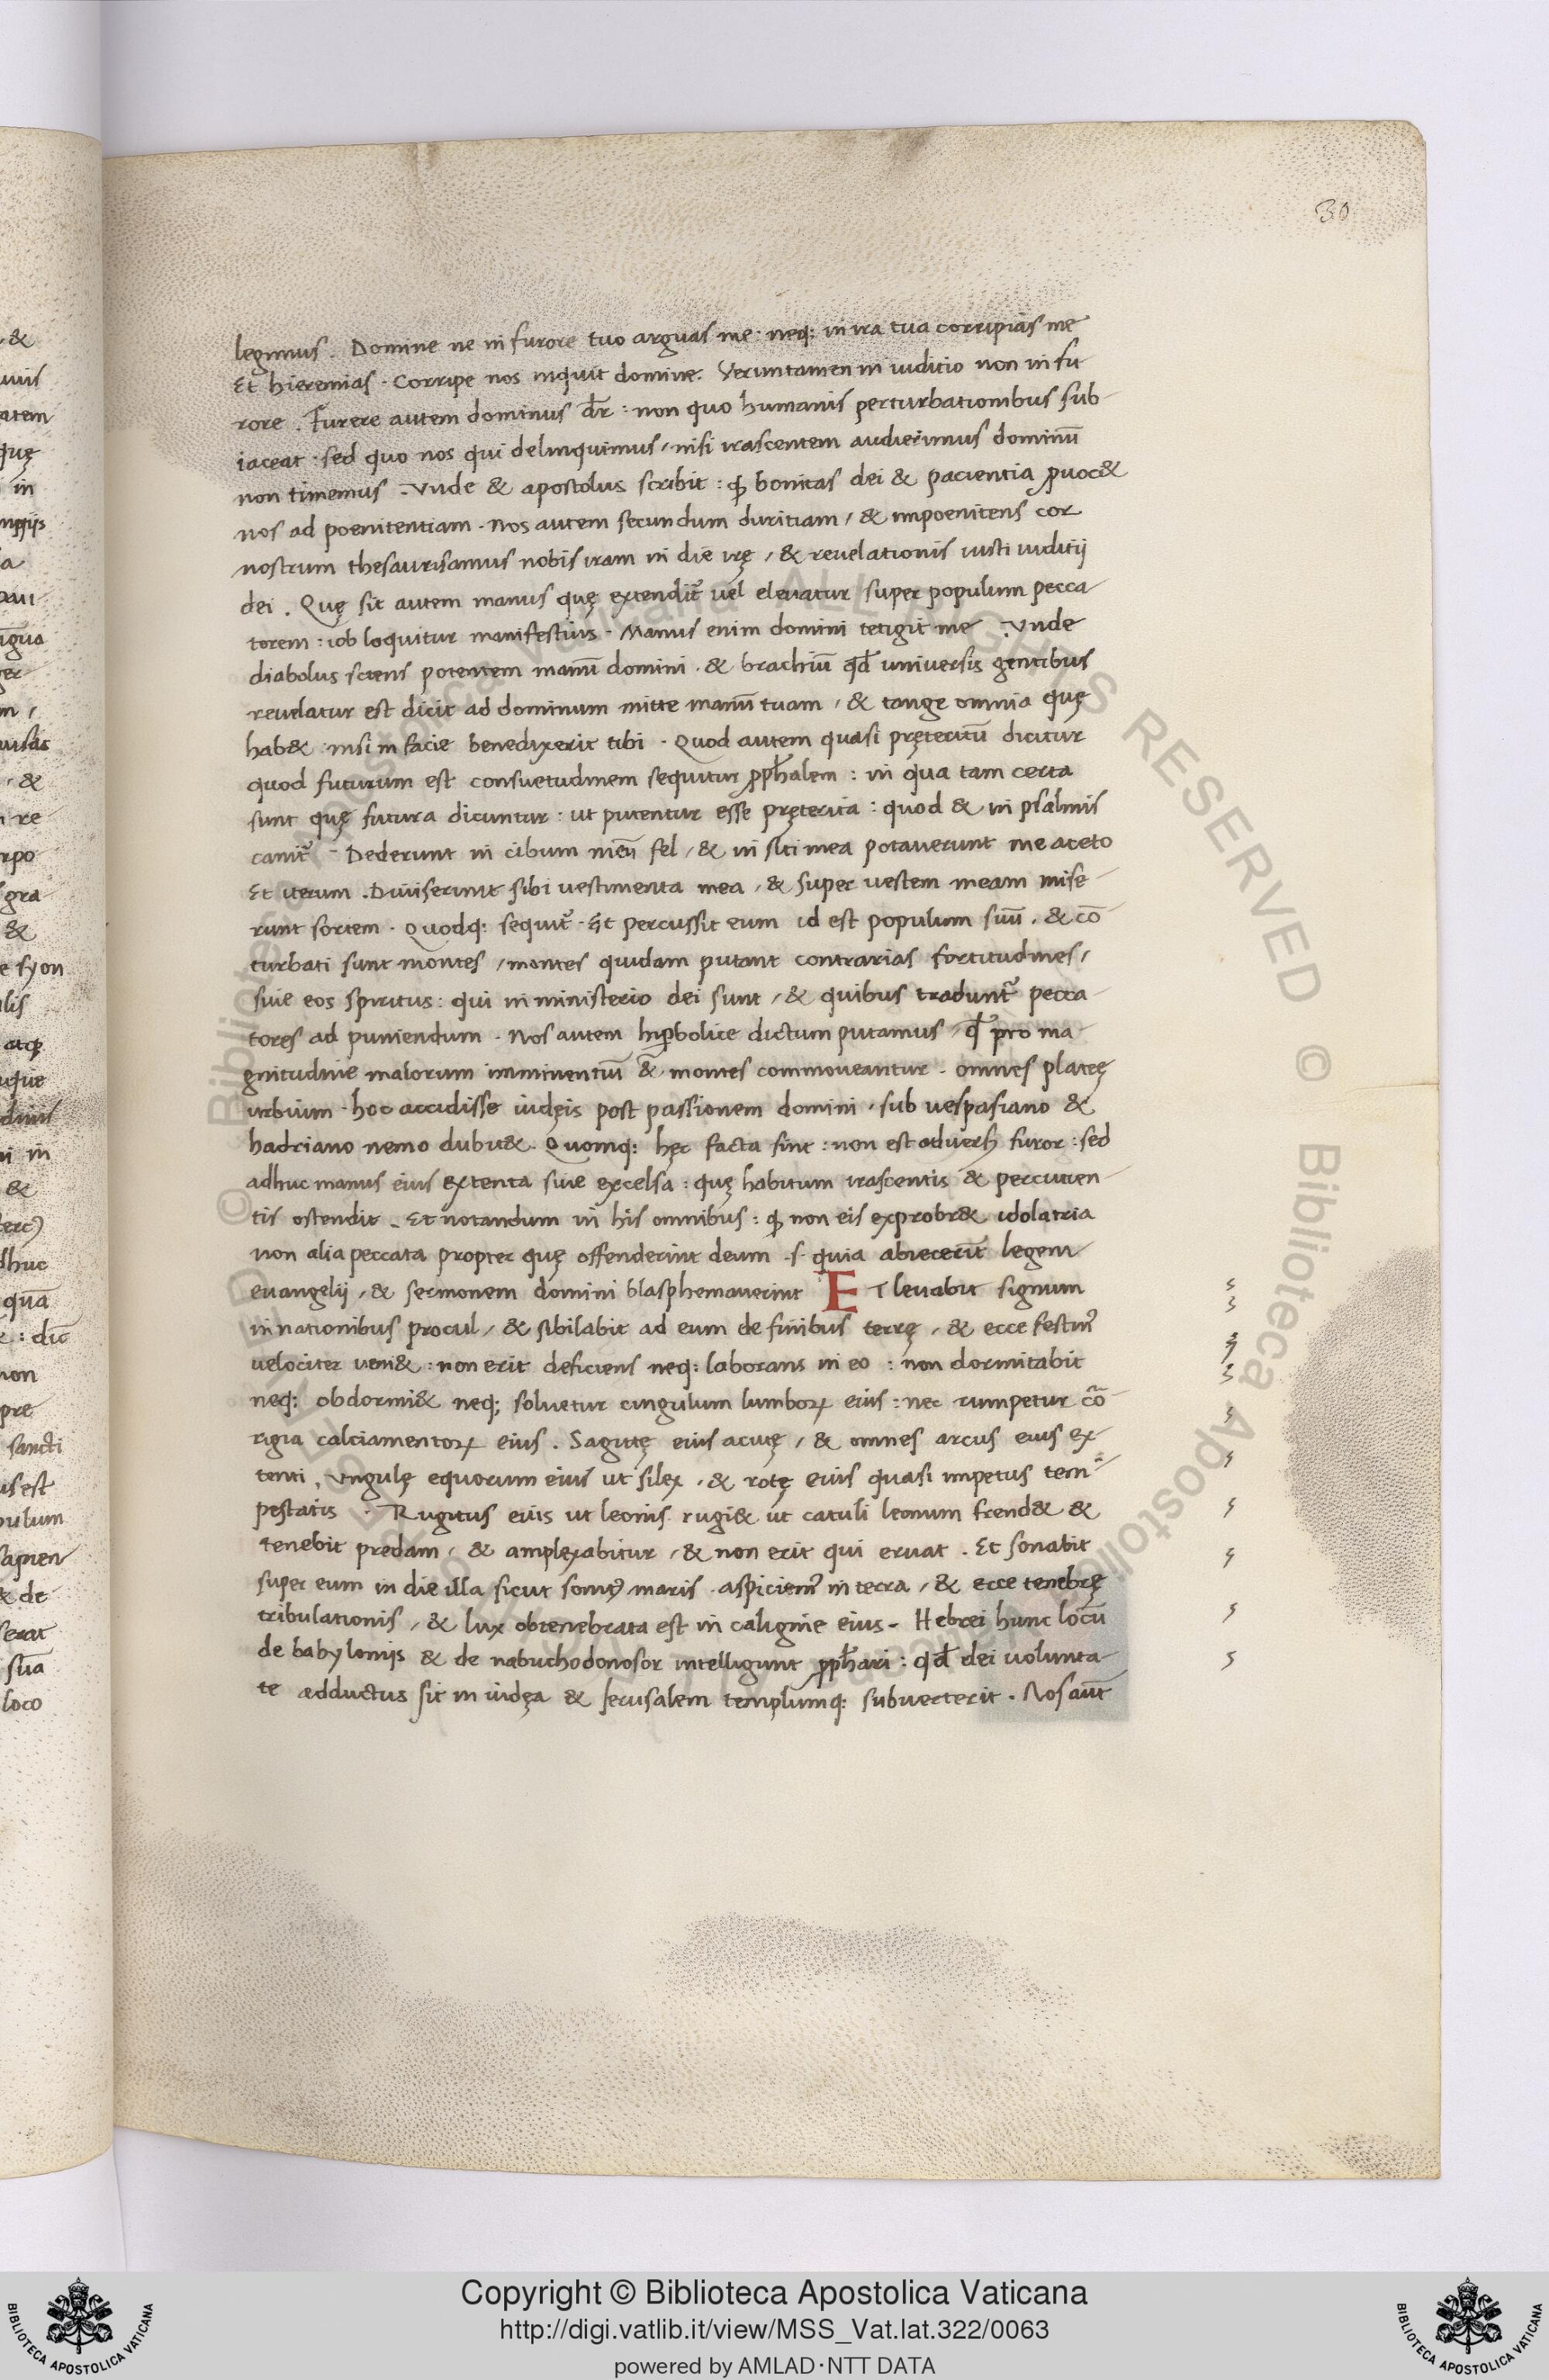 30
legimus. Domine ne in furore tuo arguas me: neq: in ira tua corripias me
Et hieremias. Corripe nos inquit domine. Veruntamen in iuditio non in fu
rore. Furere autem dominus dr̄: non quo humanis perturbationibus sub
iaceat: sed quo nos qui delinquimus, nisi irascentem audierimus dominū
non timemus. Vnde & apostolus scribit: ꝙ bonitas dei & pacientia ꝓuoc&
nos ad poenitentiam. Nos autem secundum duritiam, & impoenitens cor
nostrum thesaurisamus nobis iram in die irę, & reuelationis iusti iuditij
dei. Quę sit autem manus quę extendit̃ uel eleuatur super populum pecca
torem: iob loquitur manifestius. Manus enim domini tetigit me. Vnde
diabolus sciens potentem manū domini. & brachiū qd̄ uniuersis gentibus
reuelatur est dicit ad dominum mitte manū tuam, & tange omnia quę
hab& nisi in facie benedixerit tibi. Quod autem quasi pręteritū dicitur
quod futurum est consuetudinem sequitur ꝓph̄alem: in qua tam certa
sunt quę futura dicuntur: ut putentur esse pręterita: quod & in psalmis
canit̃ Dederunt in cibum meū fel, & in siti mea potauerunt me aceto
Et iterum. Diuiserunt sibi uestimenta mea, & super uestem meam mise
runt sortem. Quodq: sequit̃. Et percussit eum id est populum suū. & cō
turbati sunt montes, montes quidam putant contrarias fortitudines,
siue eos spiritus: qui in ministerio dei sunt, & quibus tradunt̃ pecca
tores ad puniendum. Nos autem hiꝑbolice dictum putamus, qd̄ pro ma
gnitudine malorum imminentiū & montes commoueantur. omnes plateę
urbium. hoc accidisse iudęis post passionem domini, sub uespasiano &
hadriano nemo dubit&. Quomq: hęc facta sint: non est aduersꝰ furor: sed
adhuc manus eius extenta siue excelsa: quę habitum irascentis & percutien
tis ostendit. Et notandum in his omnibus: ꝙ non eis exprobr& idolatria
non alia peccata propter quę offenderint deum .s. quia abiecerīt legem
euangelij, & sermonem domini blasphemauerint ET leuabit signum
in nationibus procul, & sibilabit ad eum de finibus terrę, & ecce festin̄
velociter ueni&: non erit deficiens neq: laborans in eo: non dormitabit
neq: obdormi& neq; soluetur cingulum lumboꝝ eius: nec rumpetur cō
rigia calciamentoꝝ eius. Sagittę eius acutę, & omnes arcus eius ex
tenti, vngulę equorum eius ut silex, & rotę eius quasi impetus tem
pestatis. Rugitus eius ut leonis rugi& ut catuli leonum frend& &
tenebit predam, & amplexabitur, & non erit qui eruat. Et sonabit
super eum in die illa sicut sonitꝰ maris. aspiciem̃ in terra, & ecce tenebrę
tribulationis, & lux obtenebrata est in caligine eius. Hebrei hunc locū
de babylonijs & de nabuchodonosor intelligunt ꝓph̄ari: qd̄ dei volunta
te adductus sit in iudęa & Jerusalem templumq: subuerterit. Nos aūt
Copyright © Biblioteca Apostolica Vaticana
http://digi.vatlib.it/view/MSS_Vat.lat.322/0063
powered by AMLAD·NTT DATA